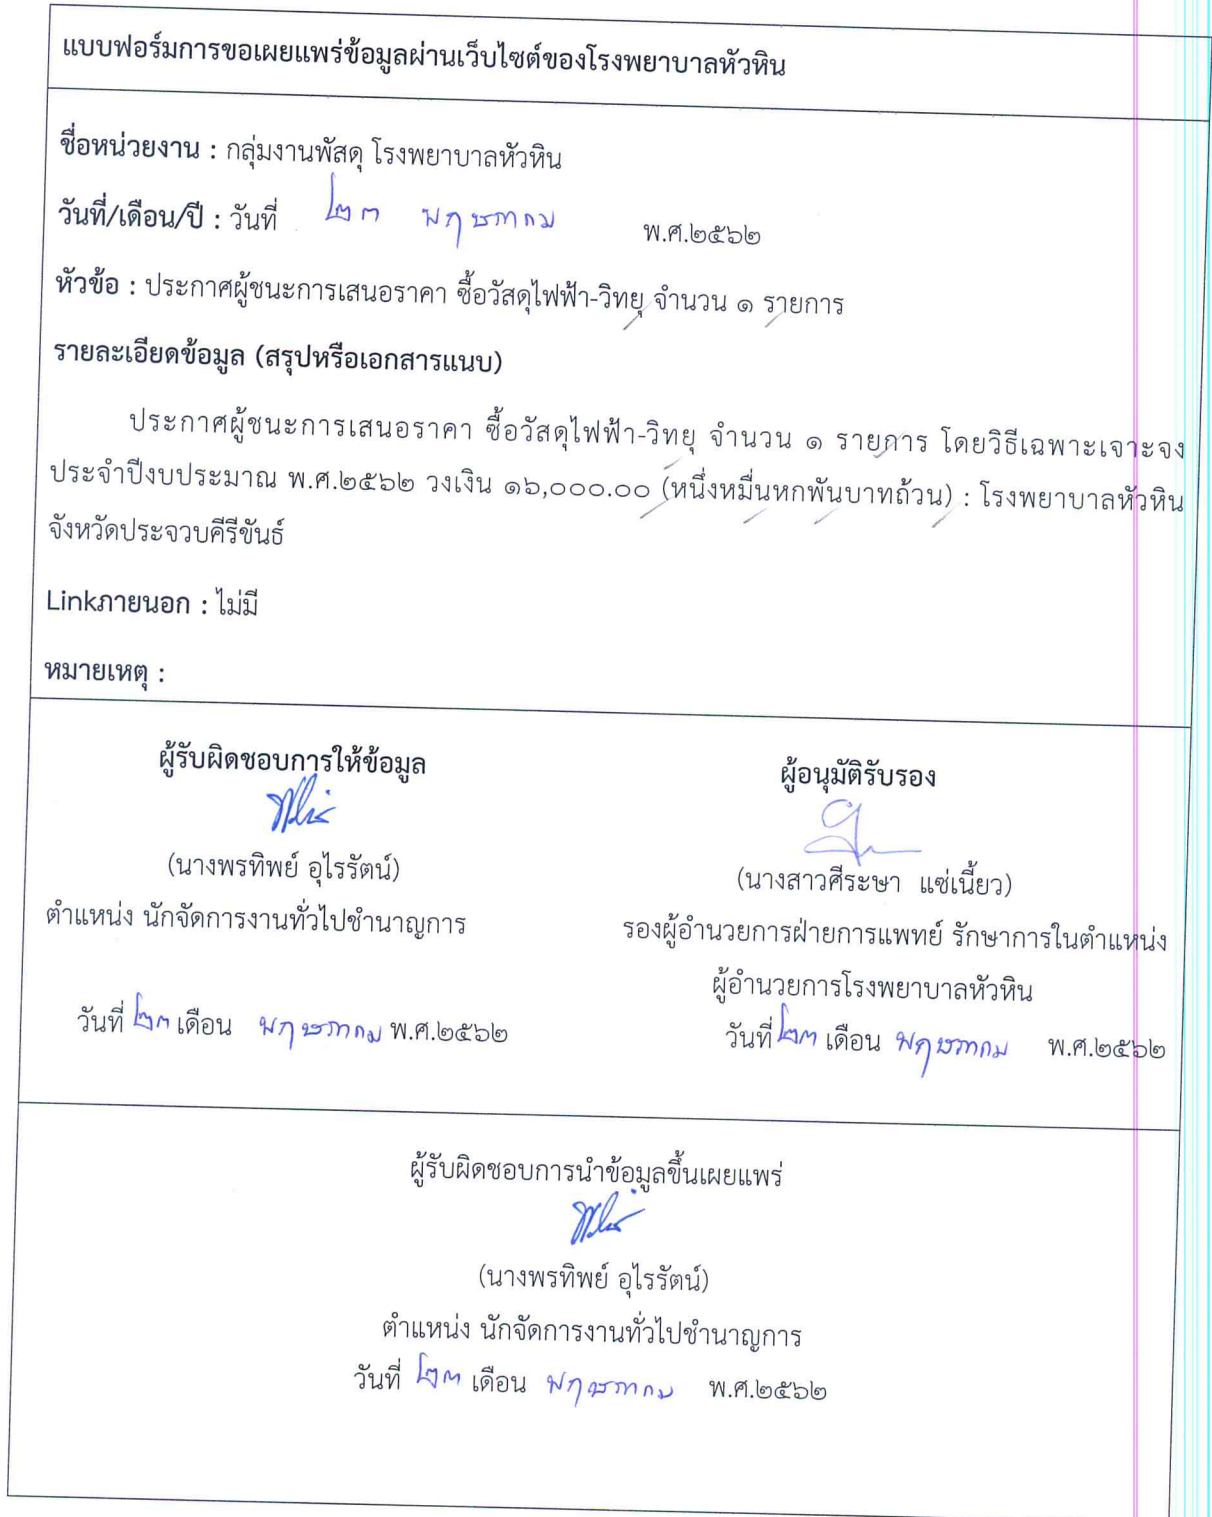 แบบฟอร์มการขอเผยแพร่ข้อมูลผ่านเว็บไซต์ของโรงพยาบาลหัวหิน
ชื่อหน่วยงาน : กลุ่มงานพัสดุ โรงพยาบาลหัวหิน
วันที่/เดือน/ปี : วันที่ ๒๓ พฤษภาคม พ.ศ.๒๕๖๒
หัวข้อ : ประกาศผู้ชนะการเสนอราคา ซื้อวัสดุไฟฟ้า-วิทยุ จำนวน ๑ รายการ
รายละเอียดข้อมูล (สรุปหรือเอกสารแนบ)
ประกาศผู้ชนะการเสนอราคา ซื้อวัสดุไฟฟ้า-วิทยุ จำนวน ๑ รายการ โดยวิธีเฉพาะเจาะจง
ประจำปีงบประมาณ พ.ศ.๒๕๖๒ วงเงิน ๑๖,๐๐๐.๐๐ (หนึ่งหมื่นหกพันบาทถ้วน) : โรงพยาบาลหัวหิน
จังหวัดประจวบคีรีขันธ์
Linkภายนอก : ไม่มี
หมายเหตุ :
ผู้รับผิดชอบการให้ข้อมูล
(นางพรทิพย์ อุไรรัตน์)
ตำแหน่ง นักจัดการงานทั่วไปชำนาญการ
วันที่ ๒๓ เดือน พฤษภาคม พ.ศ.๒๕๖๒
ผู้อนุมัติรับรอง
(นางสาวศีระษา แซ่เนี้ยว)
รองผู้อำนวยการฝ่ายการแพทย์ รักษาการในตำแหน่ง
ผู้อำนวยการโรงพยาบาลหัวหิน
วันที่ ๒๓ เดือน พฤษภาคม พ.ศ.๒๕๖๒
ผู้รับผิดชอบการนำข้อมูลขึ้นเผยแพร่
(นางพรทิพย์ อุไรรัตน์)
ตำแหน่ง นักจัดการงานทั่วไปชำนาญการ
วันที่ ๒๓ เดือน พฤษภาคม พ.ศ.๒๕๖๒